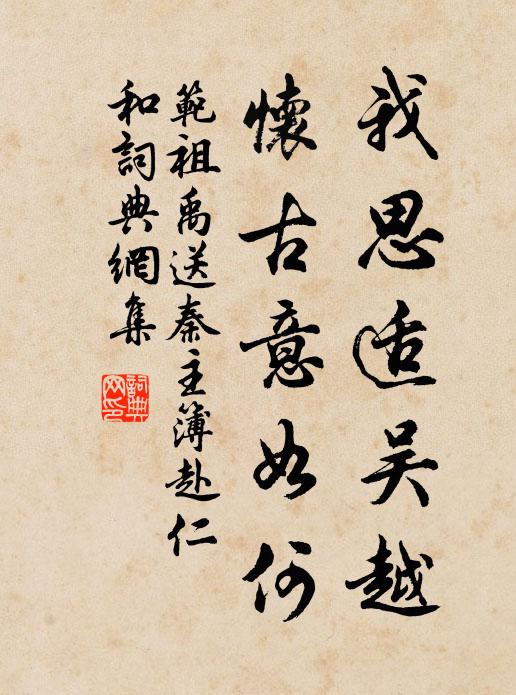 我思适吴越
懷古意如何
範祖禹送秦主簿赴仁
和詞典網集
詞典
网印